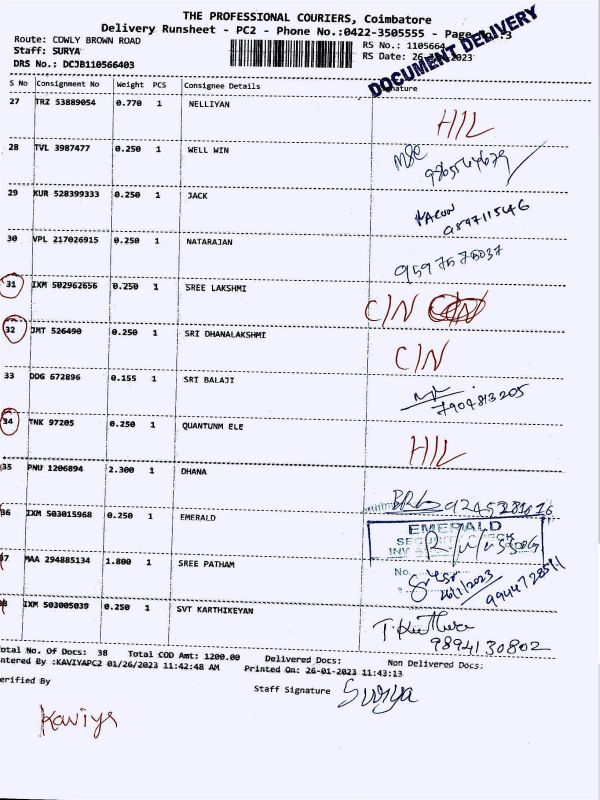 THE PROFESSIONAL COURIERS, Coimbatore
Delivery Runsheet - PC2 - Phone No.:0422-3505555 - Page No. 3
Route: COWLY BROWN ROAD
RS No.: 1105664
Staff: SURYA
RS Date: 26- 2023
DRS No.: DCJB110566403
DOCUMENT DELIVERY
S No Consignment No Weight PCS Consignee Details Signature
27 TRZ 53889054 0.770 1 NELLIYAN H/L
28 TVL 3987477 0.250 1 WELL WIN
29 KUR 528399333 0.250 1 JACK
30 VPL 217026915 0.250 1 NATARAJAN
9597575037
31 IXM 502962656 0.250 1 SREE LAKSHMI C/N
32 JMT 526490 0.250 1 SRI DHANALAKSHMI C/N
33 DDG 672896 0.155 1 SRI BALAJI
7904813205
34 TNK 97205 0.250 1 QUANTUNM ELE H/L
35 PNU 1206894 2.300 1 DHANA
36 IXM 503015968 0.250 1 EMERALD
EMERALD
SECURITY CHECK
No.
37 MAA 294885134 1.800 1 SREE PATHAM
38 IXM 503005039 0.250 1 SVT KARTHIKEYAN
9894130802
Total No. Of Docs: 38 Total COD Amt: 1200.00 Delivered Docs: Non Delivered Docs:
Entered By :KAVIYAPC2 01/26/2023 11:42:48 AM Printed On: 26-01-2023 11:43:13
Verified By
Staff Signature Surya
Kaviya